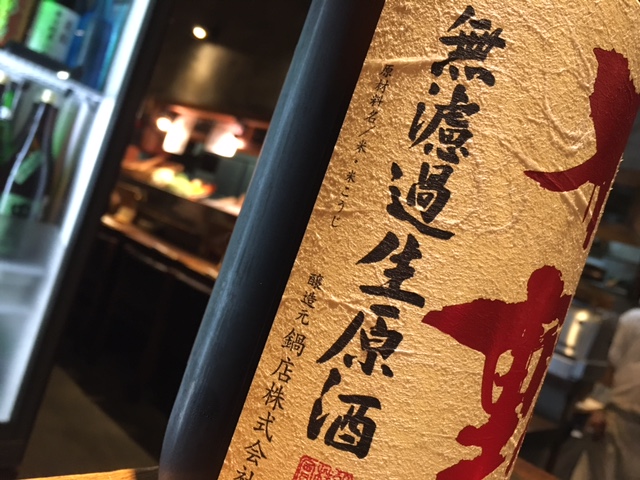 無濾過生原酒
原材料名/米・米こうじ
醸造元 鍋店株式会社